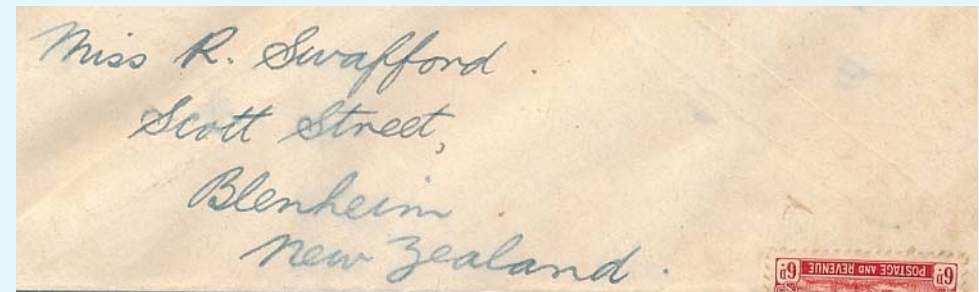 Miss R. Swafford.
Scott Street,
Blenheim
New Zealand.
6d POSTAGE AND REVENUE 6d